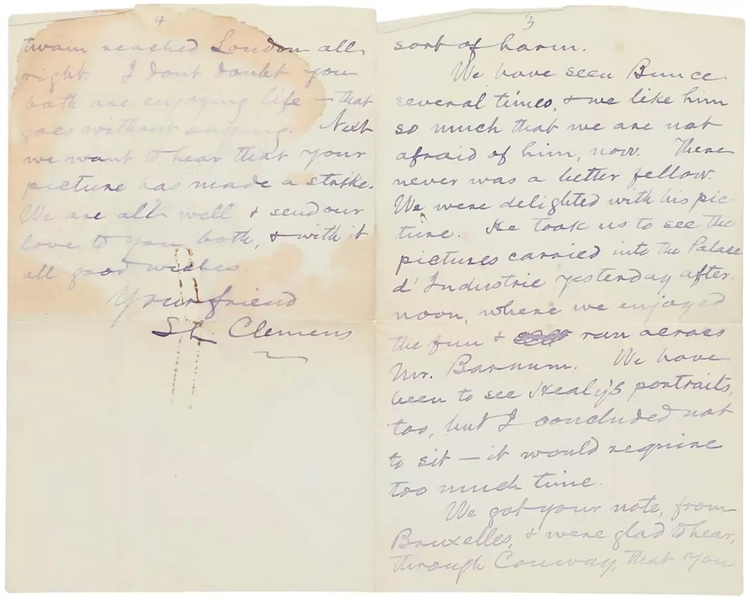 3
sort of harm.
We have seen Bunce
several times, & we like him
so much that we are not
afraid of him, now. There
never was a better fellow.
We were delighted with his pic-
ture. He took us to see the
pictures carried into the Palace
d'Industrie yesterday after-
noon, where we enjoyed
the fun & ran across
Mr. Barnum. We have
been to see Healy's portraits,
too, but I concluded not
to sit — it would require
too much time.
We got your note, from
Bruxelles, & were glad to hear,
through Conway, that you
4
twain reached London all
right. I don't doubt you
both are enjoying life — that
goes without saying. Next
we want to hear that your
picture has made a strike.
We are all well & send our
love to you both, & with it
all good wishes.
Your friend
SL Clemens